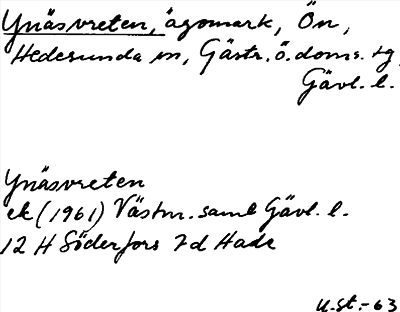 Ynäsvreten, ägomark, Ön,
Hedesunda sn, Gästr. ö. doms. tg,
Gävl. l.
Ynäsvreten
ek (1961) Västm. samt Gävl. l.
12 H Söderfors 7d Hade
u.st.-63